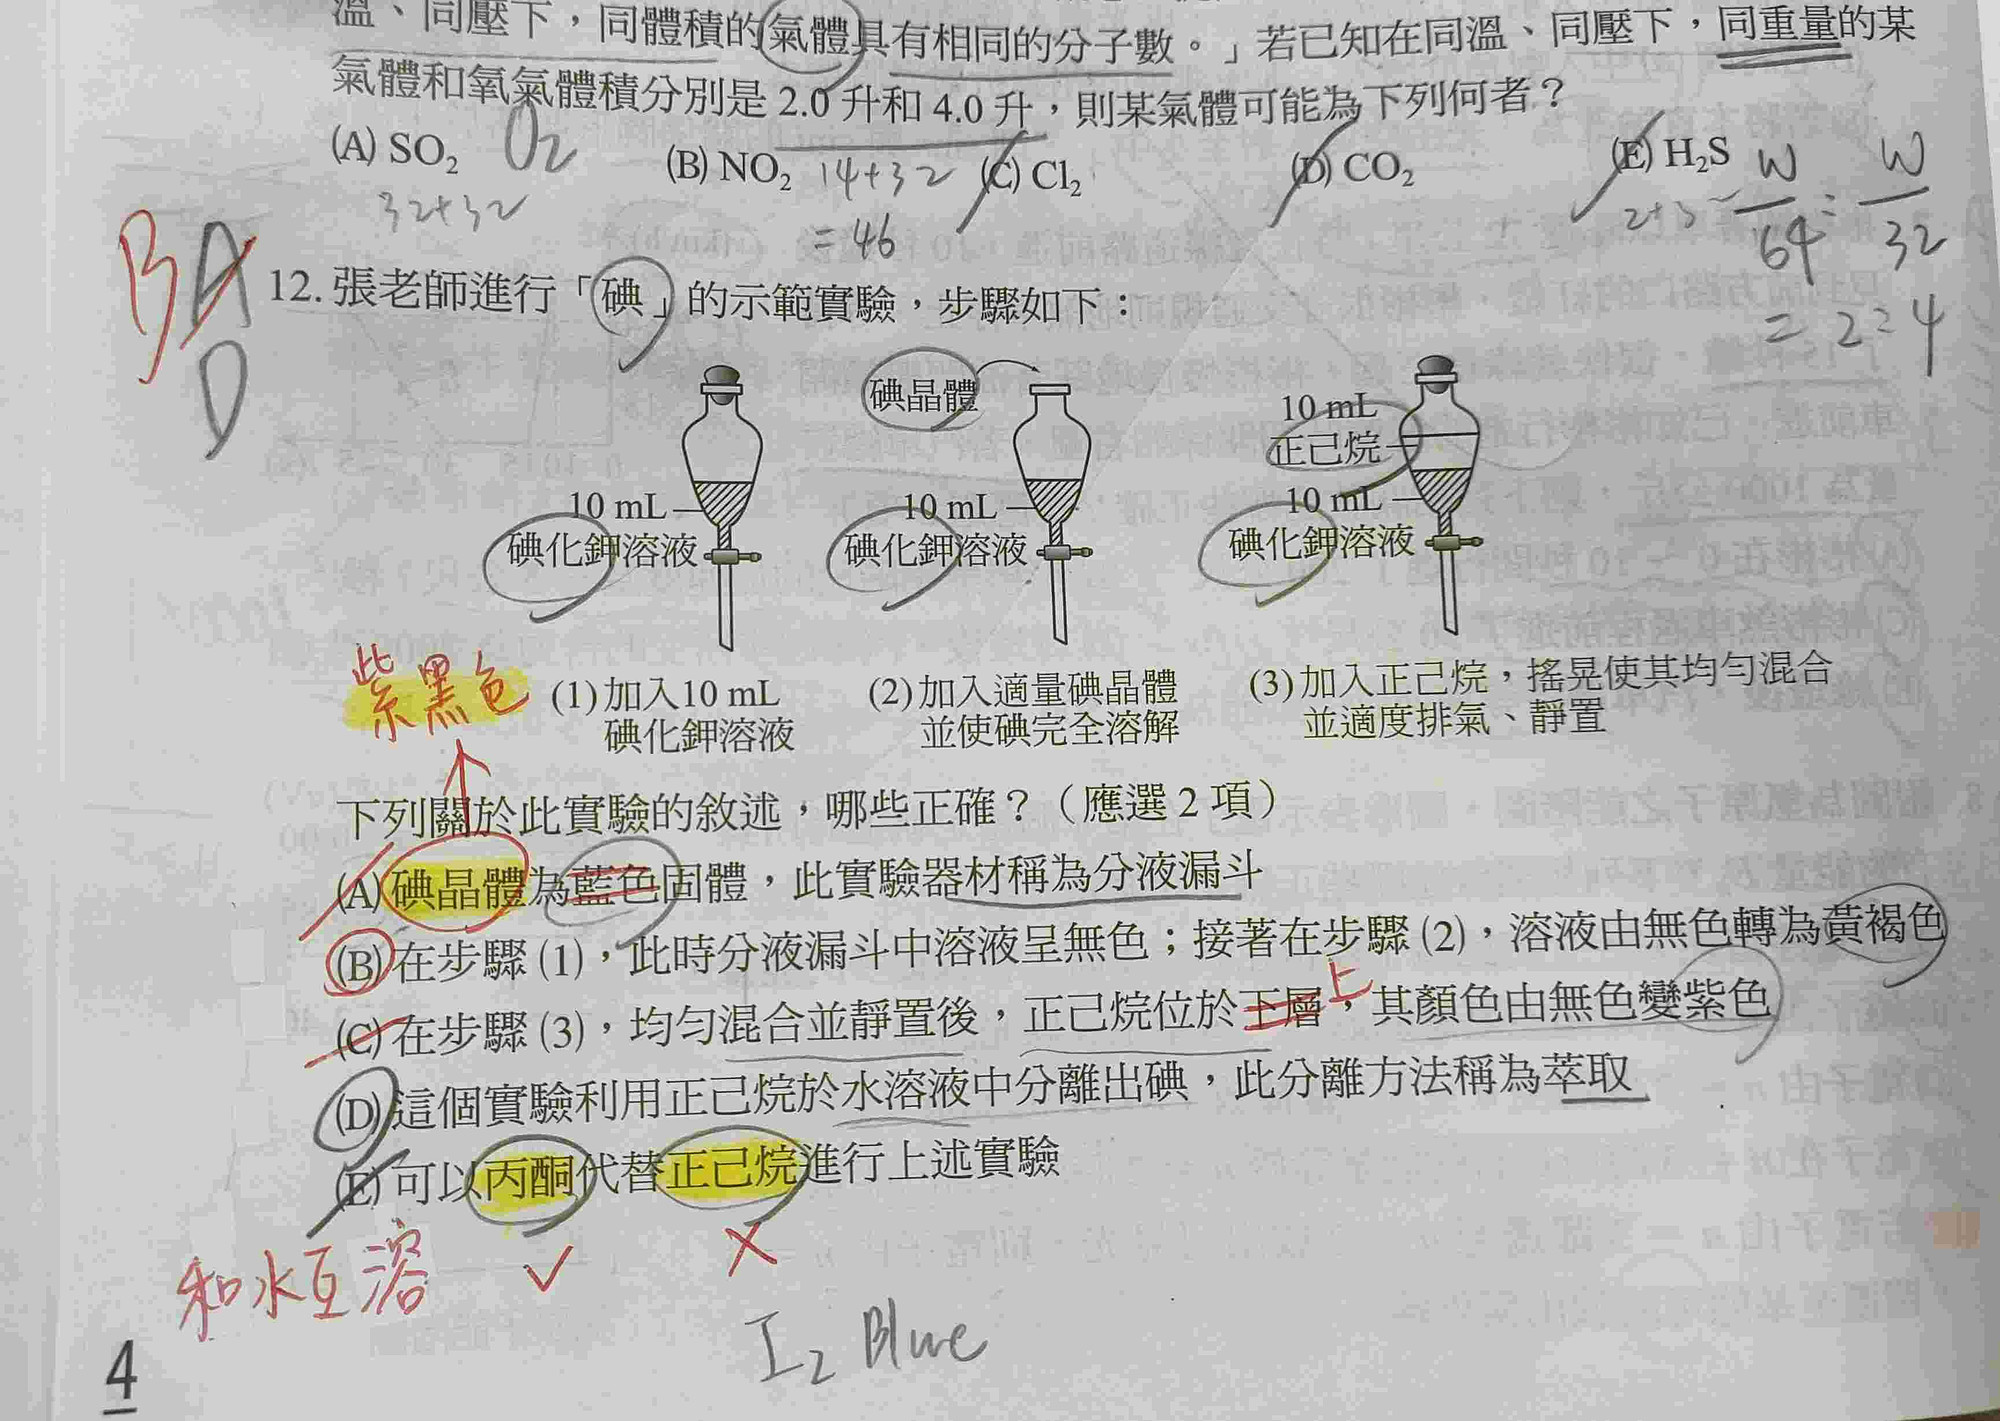 溫、同壓下，同體積的氣體具有相同的分子數。」若已知在同溫、同壓下，同重量的某
氣體和氧氣體積分別是 2.0 升和 4.0 升，則某氣體可能為下列何者？
(A) SO₂ O₂ (B) NO₂ 14+32 (C) Cl₂ (D) CO₂ (E) H₂S
32+32
= 46
2+3
W/64 : W/32
= 2:4
BA
D
12. 張老師進行「碘」的示範實驗，步驟如下：
碘晶體
10 mL
正己烷
10 mL
碘化鉀溶液
10 mL
碘化鉀溶液
10 mL
碘化鉀溶液
紫黑色
(1) 加入10 mL
碘化鉀溶液
(2) 加入適量碘晶體
並使碘完全溶解
(3) 加入正己烷，搖晃使其均勻混合
並適度排氣、靜置
下列關於此實驗的敘述，哪些正確？（應選 2 項）
(A) 碘晶體為藍色固體，此實驗器材稱為分液漏斗
(B) 在步驟 (1)，此時分液漏斗中溶液呈無色；接著在步驟 (2)，溶液由無色轉為黃褐色
上
(C) 在步驟 (3)，均勻混合並靜置後，正己烷位於下層，其顏色由無色變紫色
(D) 這個實驗利用正己烷於水溶液中分離出碘，此分離方法稱為萃取
(E) 可以丙酮代替正己烷進行上述實驗
和水互溶
I₂ Blue
4